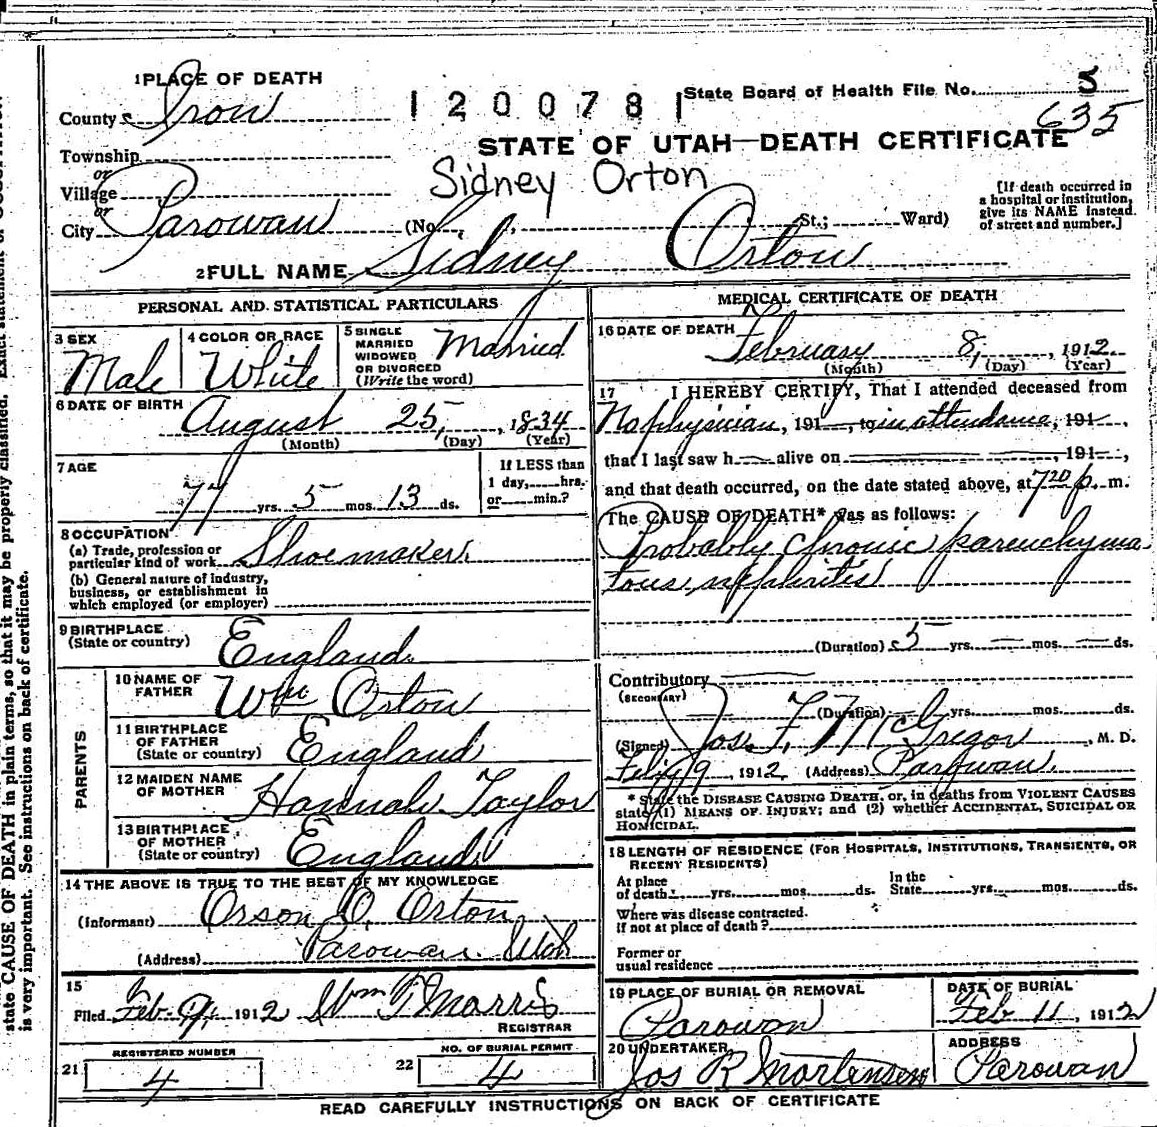 1 PLACE OF DEATH
County Iron
1200781
State Board of Health File No. 5
635
STATE OF UTAH—DEATH CERTIFICATE
Township
or
Village
or
City Parowan
Sidney Orton
(No. St.; Ward)
[If death occurred in
a hospital or institution,
give its NAME instead
of street and number.]
2 FULL NAME Sidney Orton
PERSONAL AND STATISTICAL PARTICULARS
3 SEX
Male
4 COLOR OR RACE
White
5 SINGLE
MARRIED
WIDOWED
OR DIVORCED
(Write the word)
Married
6 DATE OF BIRTH
August 25, 1834
(Month) (Day) (Year)
7 AGE
77 yrs. 5 mos. 13 ds.
If LESS than
1 day, hrs.
or min.?
8 OCCUPATION
(a) Trade, profession or
particular kind of work Shoemaker.
(b) General nature of industry,
business, or establishment in
which employed (or employer)
9 BIRTHPLACE
(State or country) England.
PARENTS
10 NAME OF
FATHER Wm Orton
11 BIRTHPLACE
OF FATHER
(State or country) England
12 MAIDEN NAME
OF MOTHER Hannah Taylor
13 BIRTHPLACE
OF MOTHER
(State or country) England
14 THE ABOVE IS TRUE TO THE BEST OF MY KNOWLEDGE
(Informant) Orson O. Orton
(Address) Parowan Utah
15
Filed Feb. 9, 1912 Wm T. Morris
REGISTRAR
REGISTERED NUMBER
21 4
NO. OF BURIAL PERMIT
22 4
MEDICAL CERTIFICATE OF DEATH
16 DATE OF DEATH
February 8, 1912
(Month) (Day) (Year)
17 I HEREBY CERTIFY, That I attended deceased from
No physician, 191—, to in attendance, 191—,
that I last saw h— alive on ——, 191—,
and that death occurred, on the date stated above, at 7 20 p. m.
The CAUSE OF DEATH* was as follows:
Probably chronic parenchyma-
tous nephritis
(Duration) 5 yrs. — mos. — ds.
Contributory
(SECONDARY)
(Duration) yrs. mos. ds.
(Signed) Jos. F. McGregor, M. D.
Feb 9, 1912 (Address) Parowan.
* State the DISEASE CAUSING DEATH, or, in deaths from VIOLENT CAUSES
state (1) MEANS OF INJURY; and (2) whether ACCIDENTAL, SUICIDAL OR
HOMICIDAL.
18 LENGTH OF RESIDENCE (FOR HOSPITALS, INSTITUTIONS, TRANSIENTS, OR
RECENT RESIDENTS)
At place
of death yrs. mos. ds.
In the
State yrs. mos. ds.
Where was disease contracted.
if not at place of death?
Former or
usual residence
19 PLACE OF BURIAL OR REMOVAL
Parowan
DATE OF BURIAL
Feb 11, 1912
20 UNDERTAKER
Jos R Mortensen
ADDRESS
Parowan
READ CAREFULLY INSTRUCTIONS ON BACK OF CERTIFICATE
state CAUSE OF DEATH in plain terms, so that it may be properly classified. Exact statement of
is very important. See instructions on back of certificate.